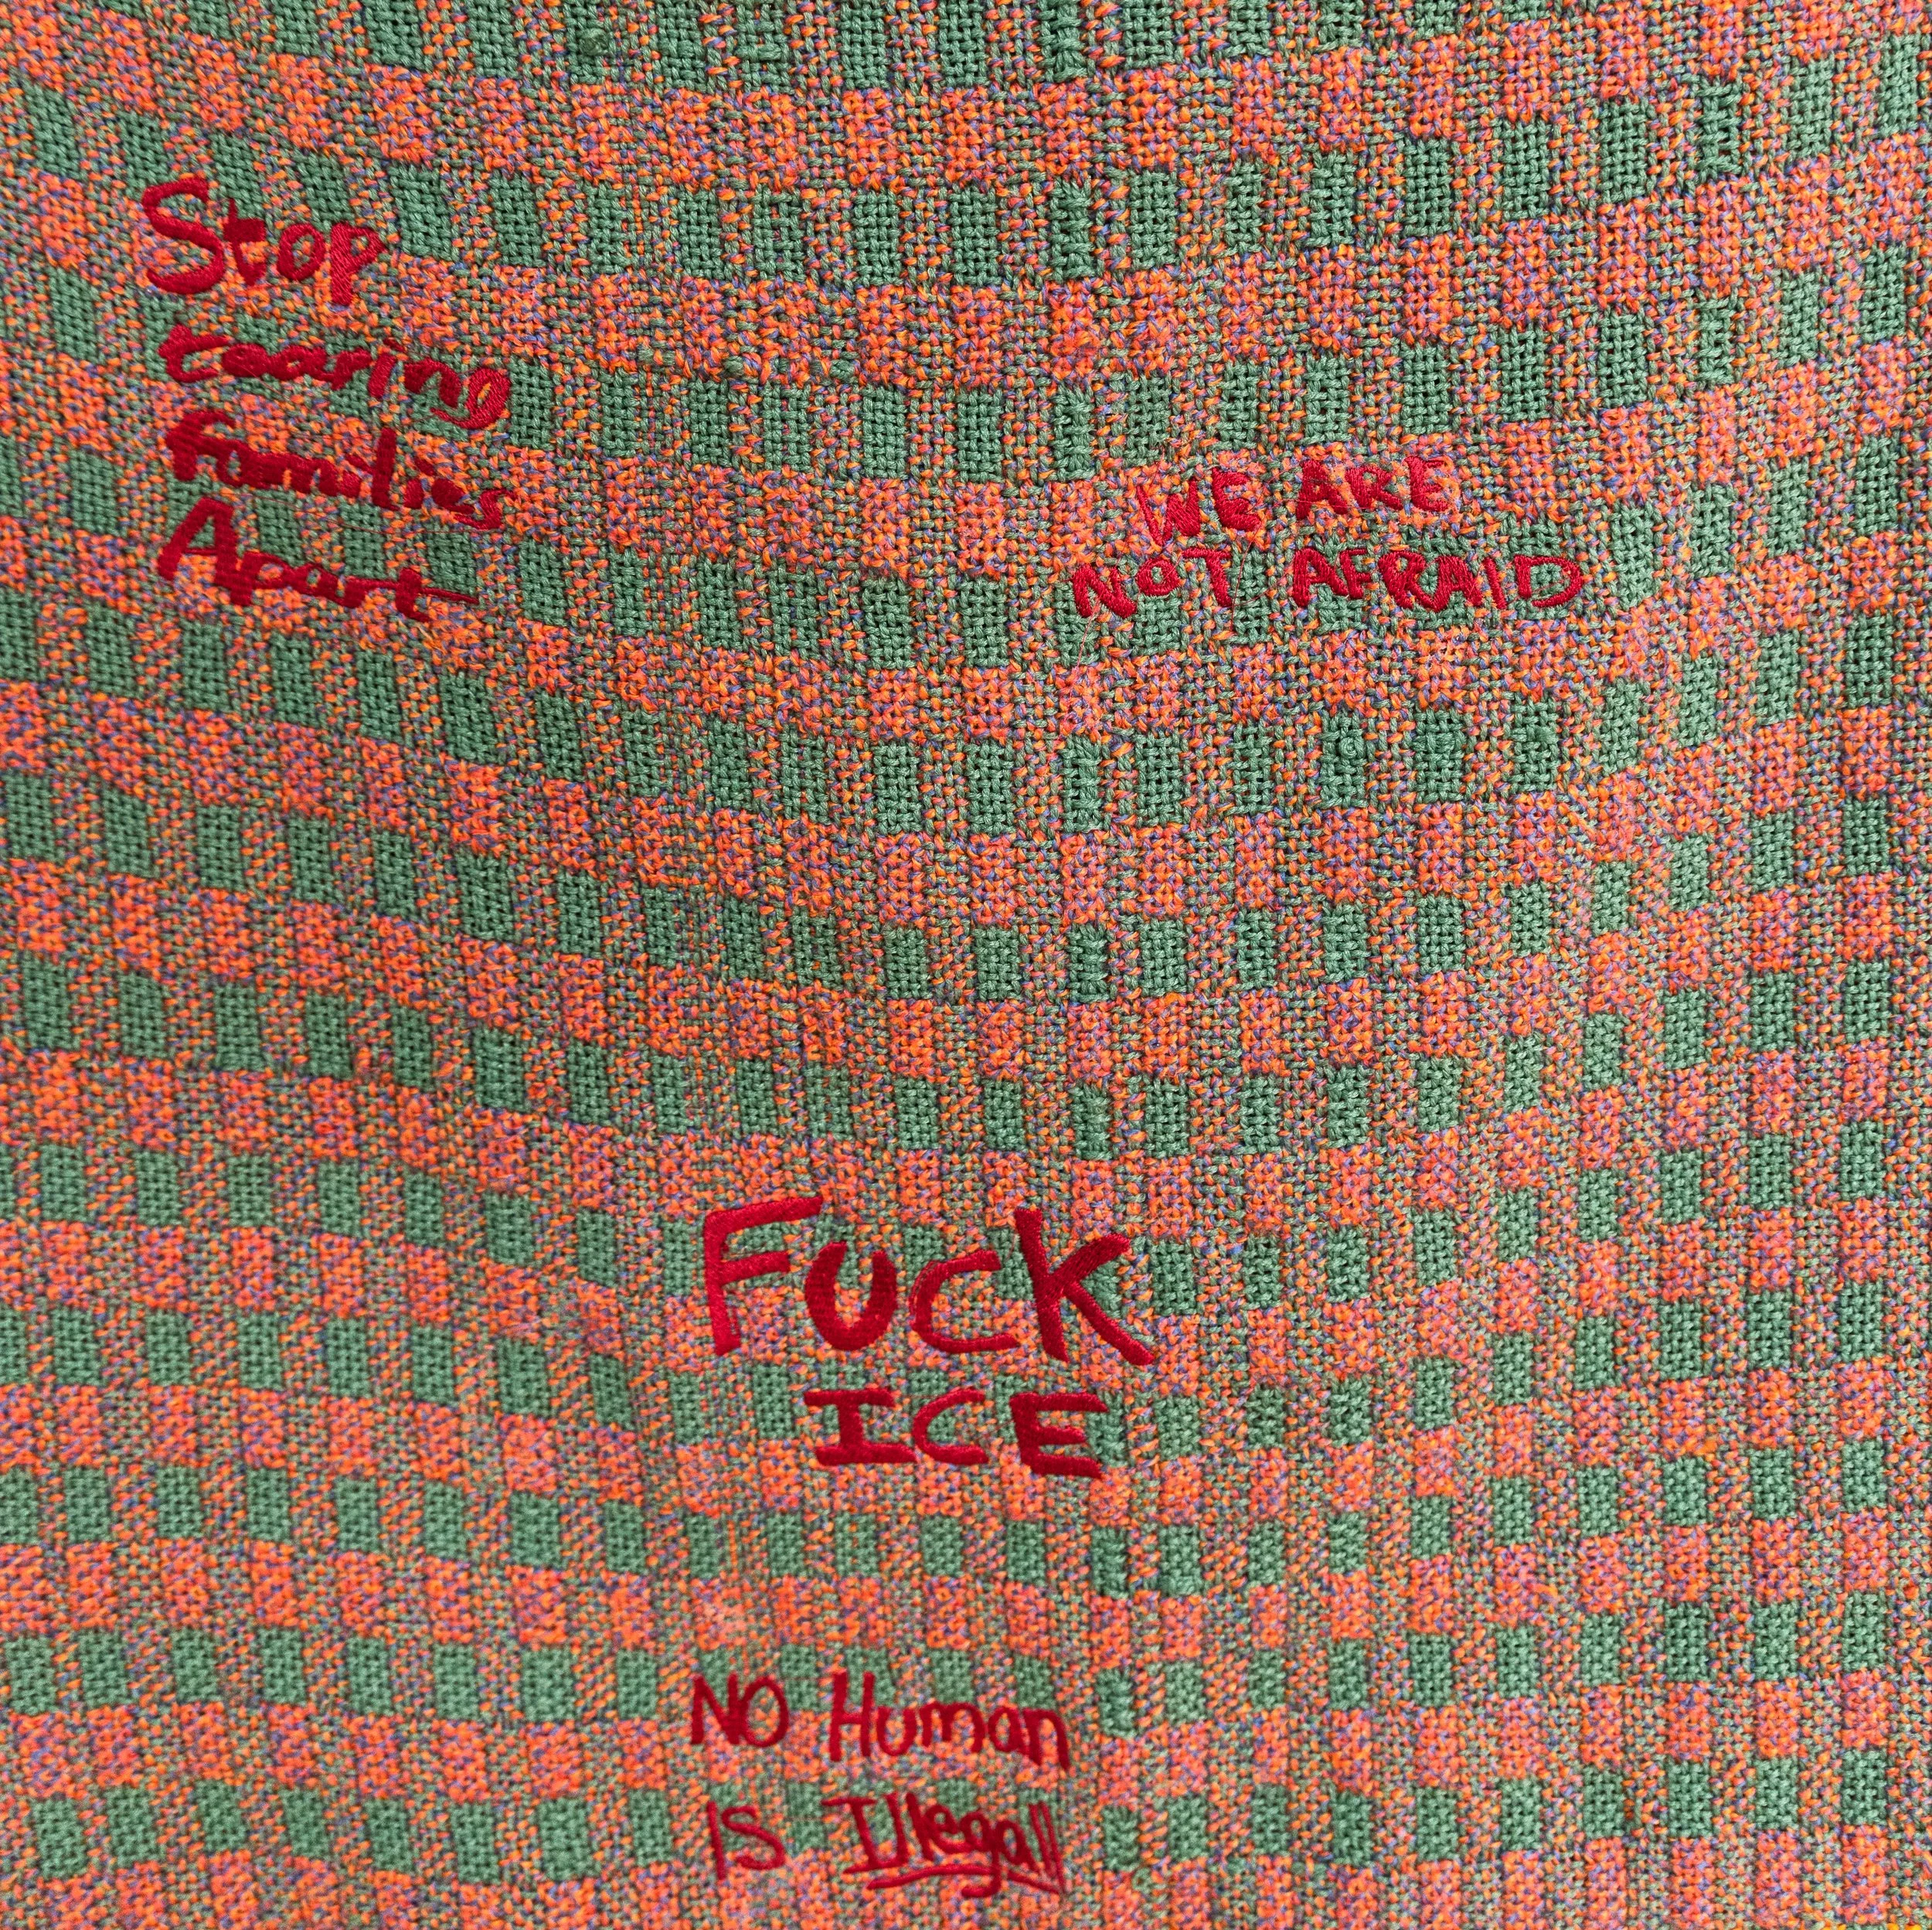 Stop
tearing
families
Apart
WE ARE
NOT AFRAID
FUCK
ICE
NO Human
IS Illegal